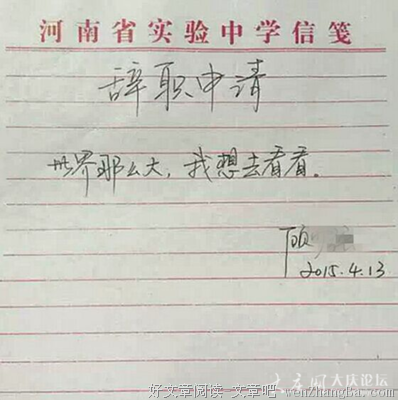 河南省实验中学信笺
辞职申请
世界那么大，我想去看看。
顾
2015.4.13
大庆论坛
好文章阅读-文章吧-wenzhangba.com